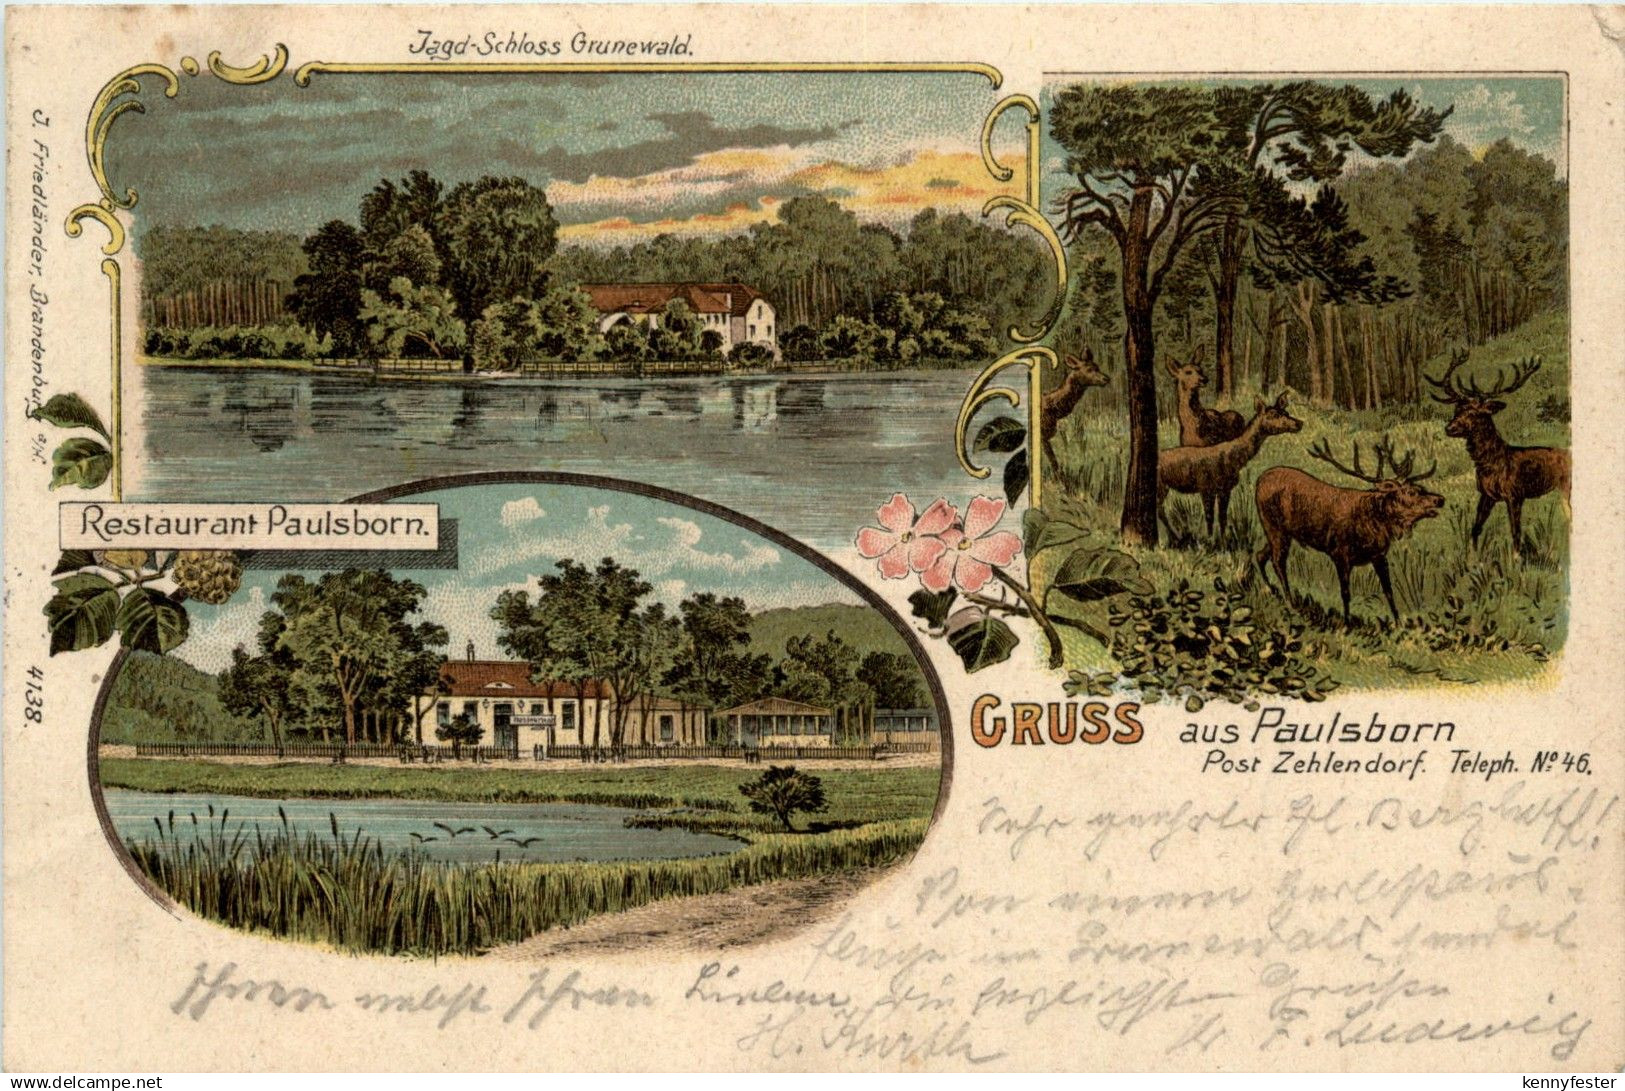 Jagd-Schloss Grunewald.
J. Friedländer, Brandenburg a/H. 4138.
Restaurant Paulsborn.
GRUSS aus Paulsborn
Post Zehlendorf. Teleph. No 46.
Sehr geehrter Hl. Berghoff!
Von einem Herbstaus-
fluge im Grunewald sendet
Ihnen nebst Ihren Lieben, die herzlichsten Grüße
H. Kurth F. Ludwig
www.delcampe.net
kennyfester